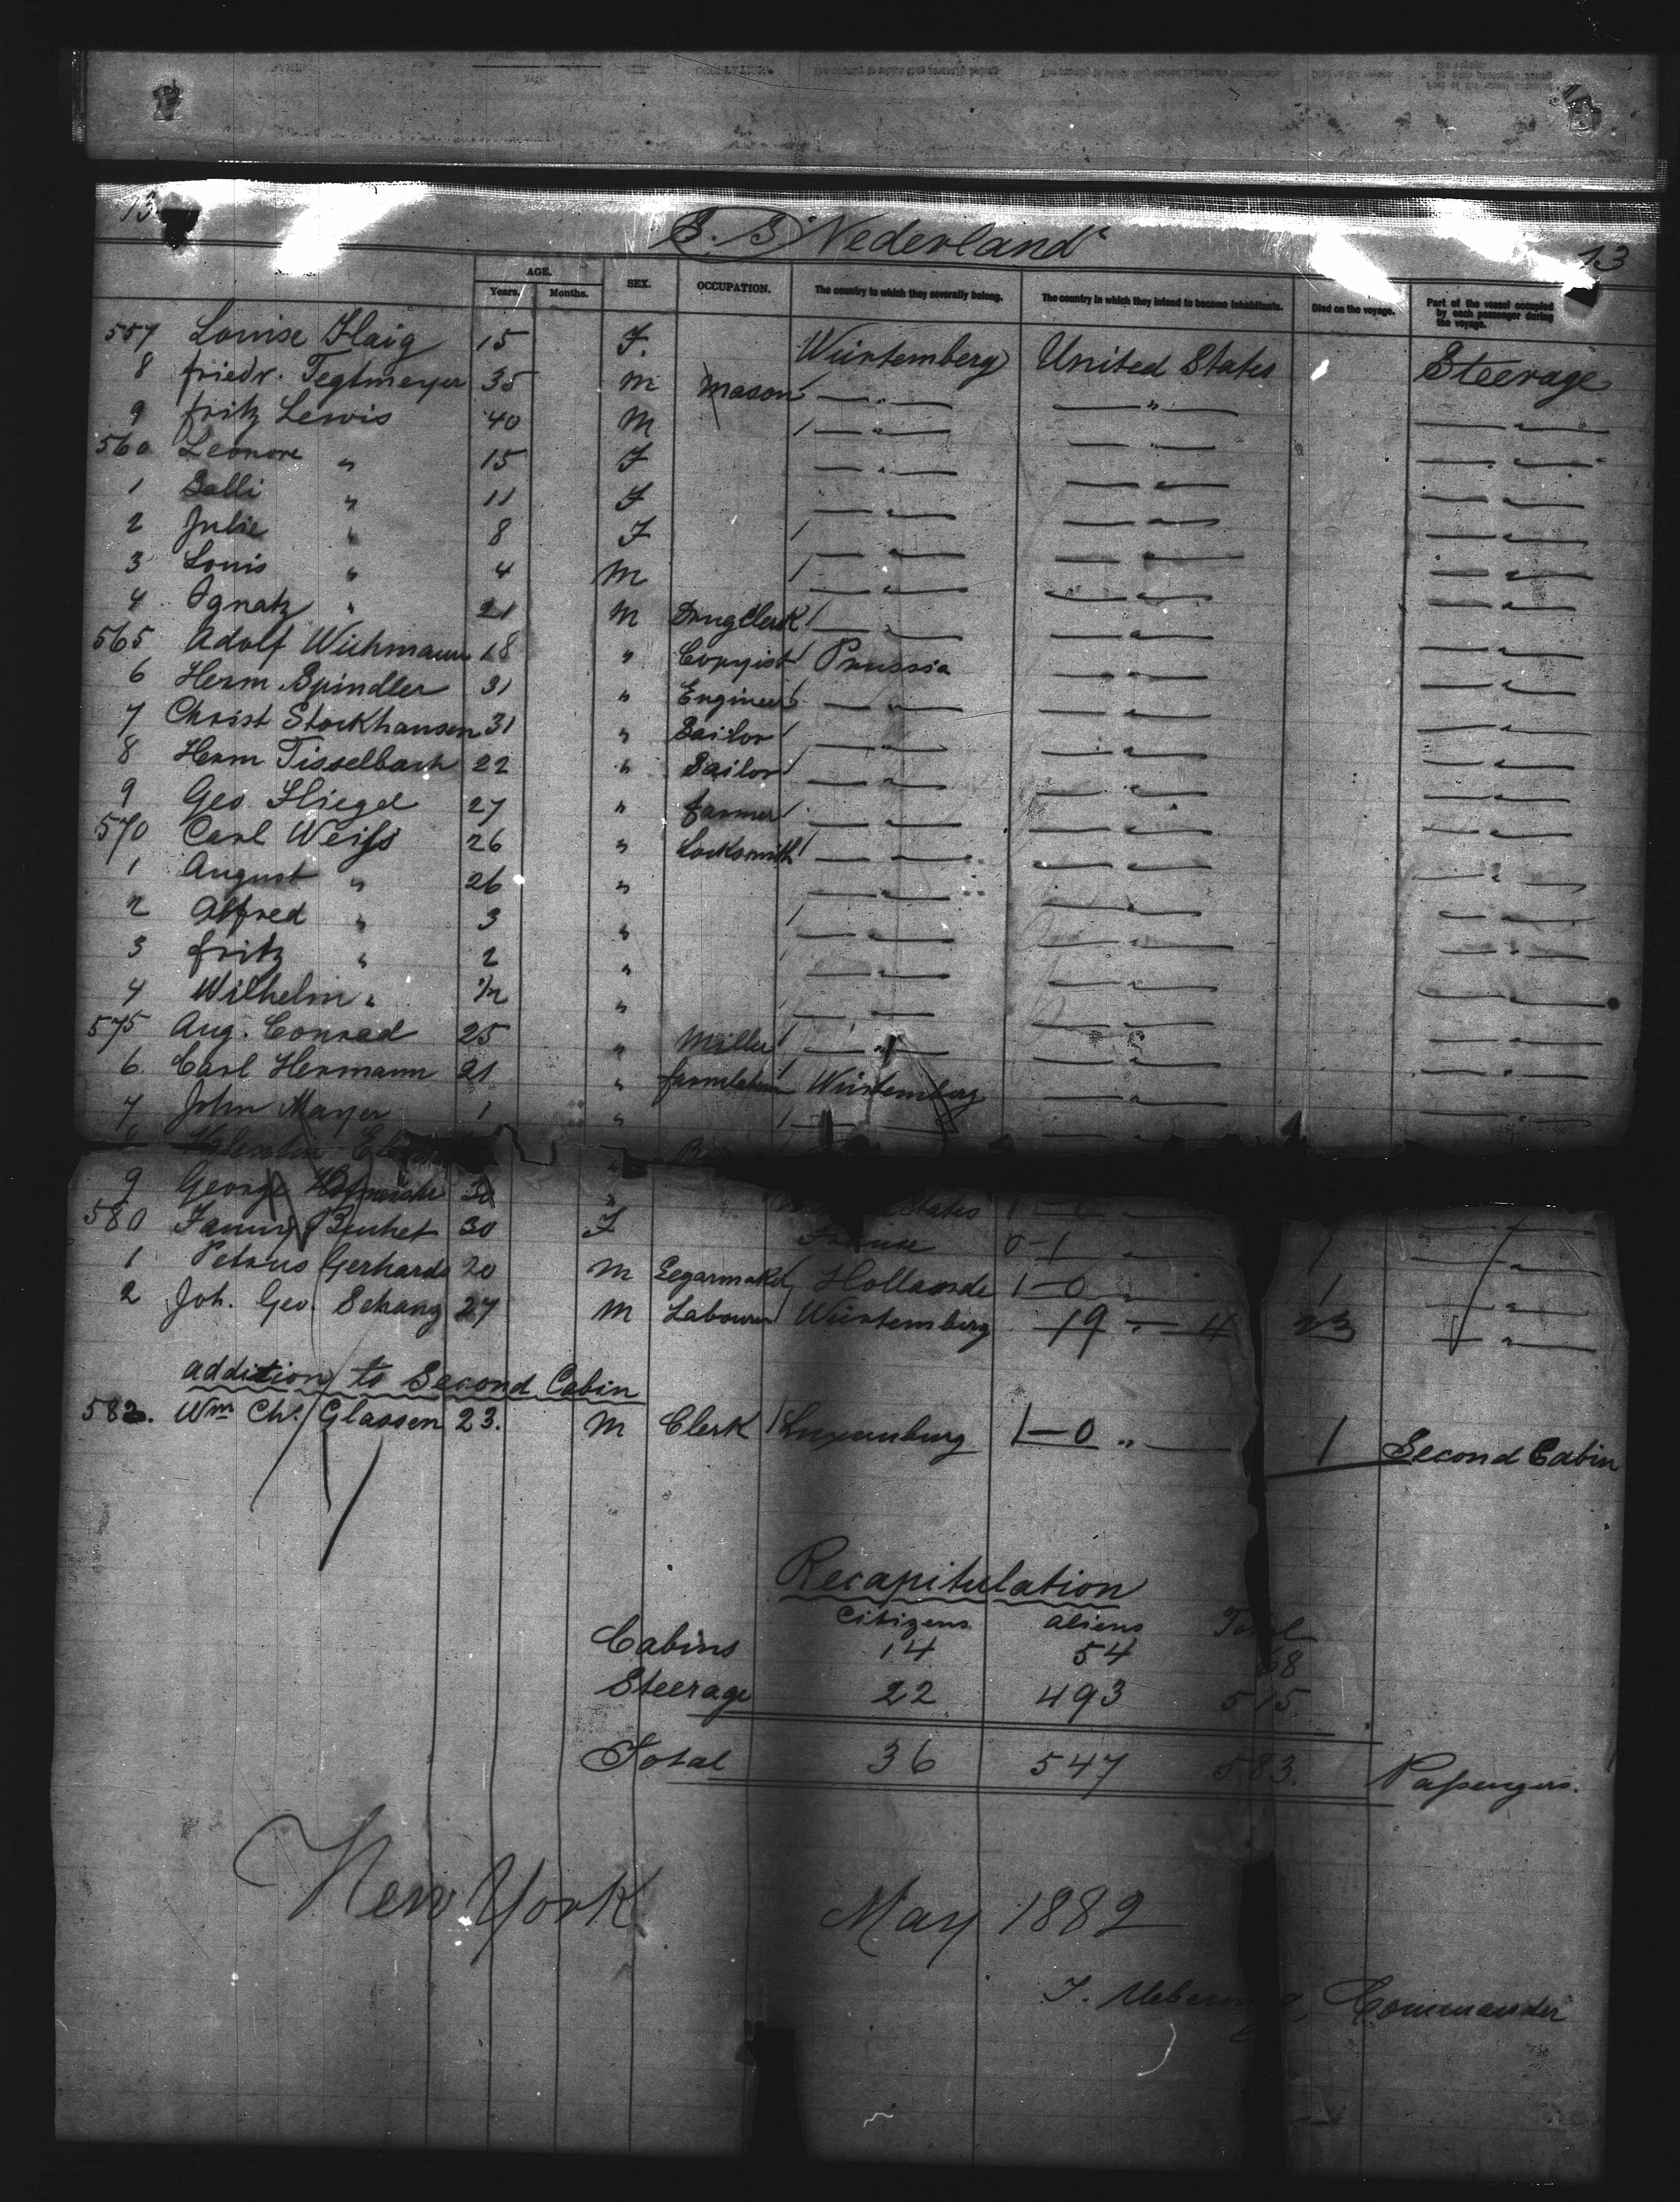 13
S.S "Nederland"
13
AGE.
Years. Months. SEX. OCCUPATION. The country to which they severally belong. The country in which they intend to become inhabitants. Died on the voyage. Part of the vessel occupied by each passenger during the voyage.
557 Louise Haig 15 F. Würtemberg United States Steerage
8 friedr. Tegtmeyer 35 M Mason — " — — " — — " —
9 fritz Lewis 40 M — " — — " — — " —
560 Leonore " 15 F — " — — " — — " —
1 Salli " 11 F — " — — " — — " —
2 Julie " 8 F — " — — " — — " —
3 Louis " 4 M — " — — " — — " —
4 Ignatz " 21 M DrugClerk — " — — " — — " —
565 Adolf Wichmann 18 " Copyist Prussia — " — — " —
6 Herm. Spindler 31 " Engineer — " — — " — — " —
7 Christ Stockhausen 31 " Sailor — " — — " — — " —
8 Herm Tisselbach 22 " Sailor — " — — " — — " —
9 Geo. 27 " farmer — " — — " — — " —
570 Carl Weiss 26 " Locksmith — " — — " — — " —
1 August " 26 " — " — — " — — " —
2 Alfred " 3 " — " — — " — — " —
3 fritz " 2 " — " — — " — — " —
4 Wilhelm " " — " — — " — — " —
575 Aug. Conrad 25 " Miller — " — — " — — " —
6. Carl Hermann 21 " Würtemberg — " — — " —
7 John Mayer 1 " — " — — " — — " —
8
9 George 30 " States 1 — 0
580 Fanny 30 F 0 — 1 — 1 — " —
1 Petrus Gerhards 20 M Segarmaker Hollande 1 — 0 " — 1 — " —
2 Joh. Geo. Schanz 27 M Labourer Würtemberg 19 — " — 4 23 — " —
addition to Second Cabin
583. Wm Ch. Glassen 23. M Clerk Luxemburg 1 — 0 " — 1 Second Cabin
Recapitulation
Citizens aliens Total
Cabins 14 54 68
Steerage 22 493 515
Total 36 547 583. Passengers.
New York May 1882
Commander